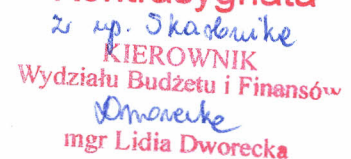 Kontrasygnata
z up. Skarbnika
KIEROWNIK
Wydziału Budżetu i Finansów
Dworecka
mgr Lidia Dworecka